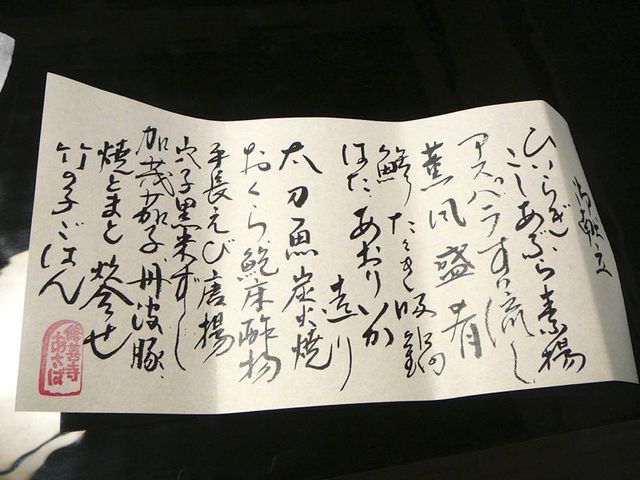 御献立
ひいらぎ、
こしあぶら素揚
アスパラすり流し
薫風盛肴
たたき吸
あおりいか
造り
太刀魚炭火焼
おくら、鮑床酢物
手長えび唐揚
穴子黒米ずし
加茂茄子、丹波豚、
焼とまと 焚合せ
竹の子ごはん
修善寺
あさば